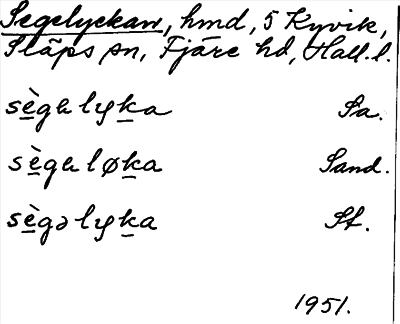 Segelyckan, hmd, 5 Kyvik,
Släps sn, Fjäre hd, Hall. l.
sè̱gɐ lyḵa Sa.
sè̱gɐ løḵa Sand.
sè̱gə lyḵa St.
1951.